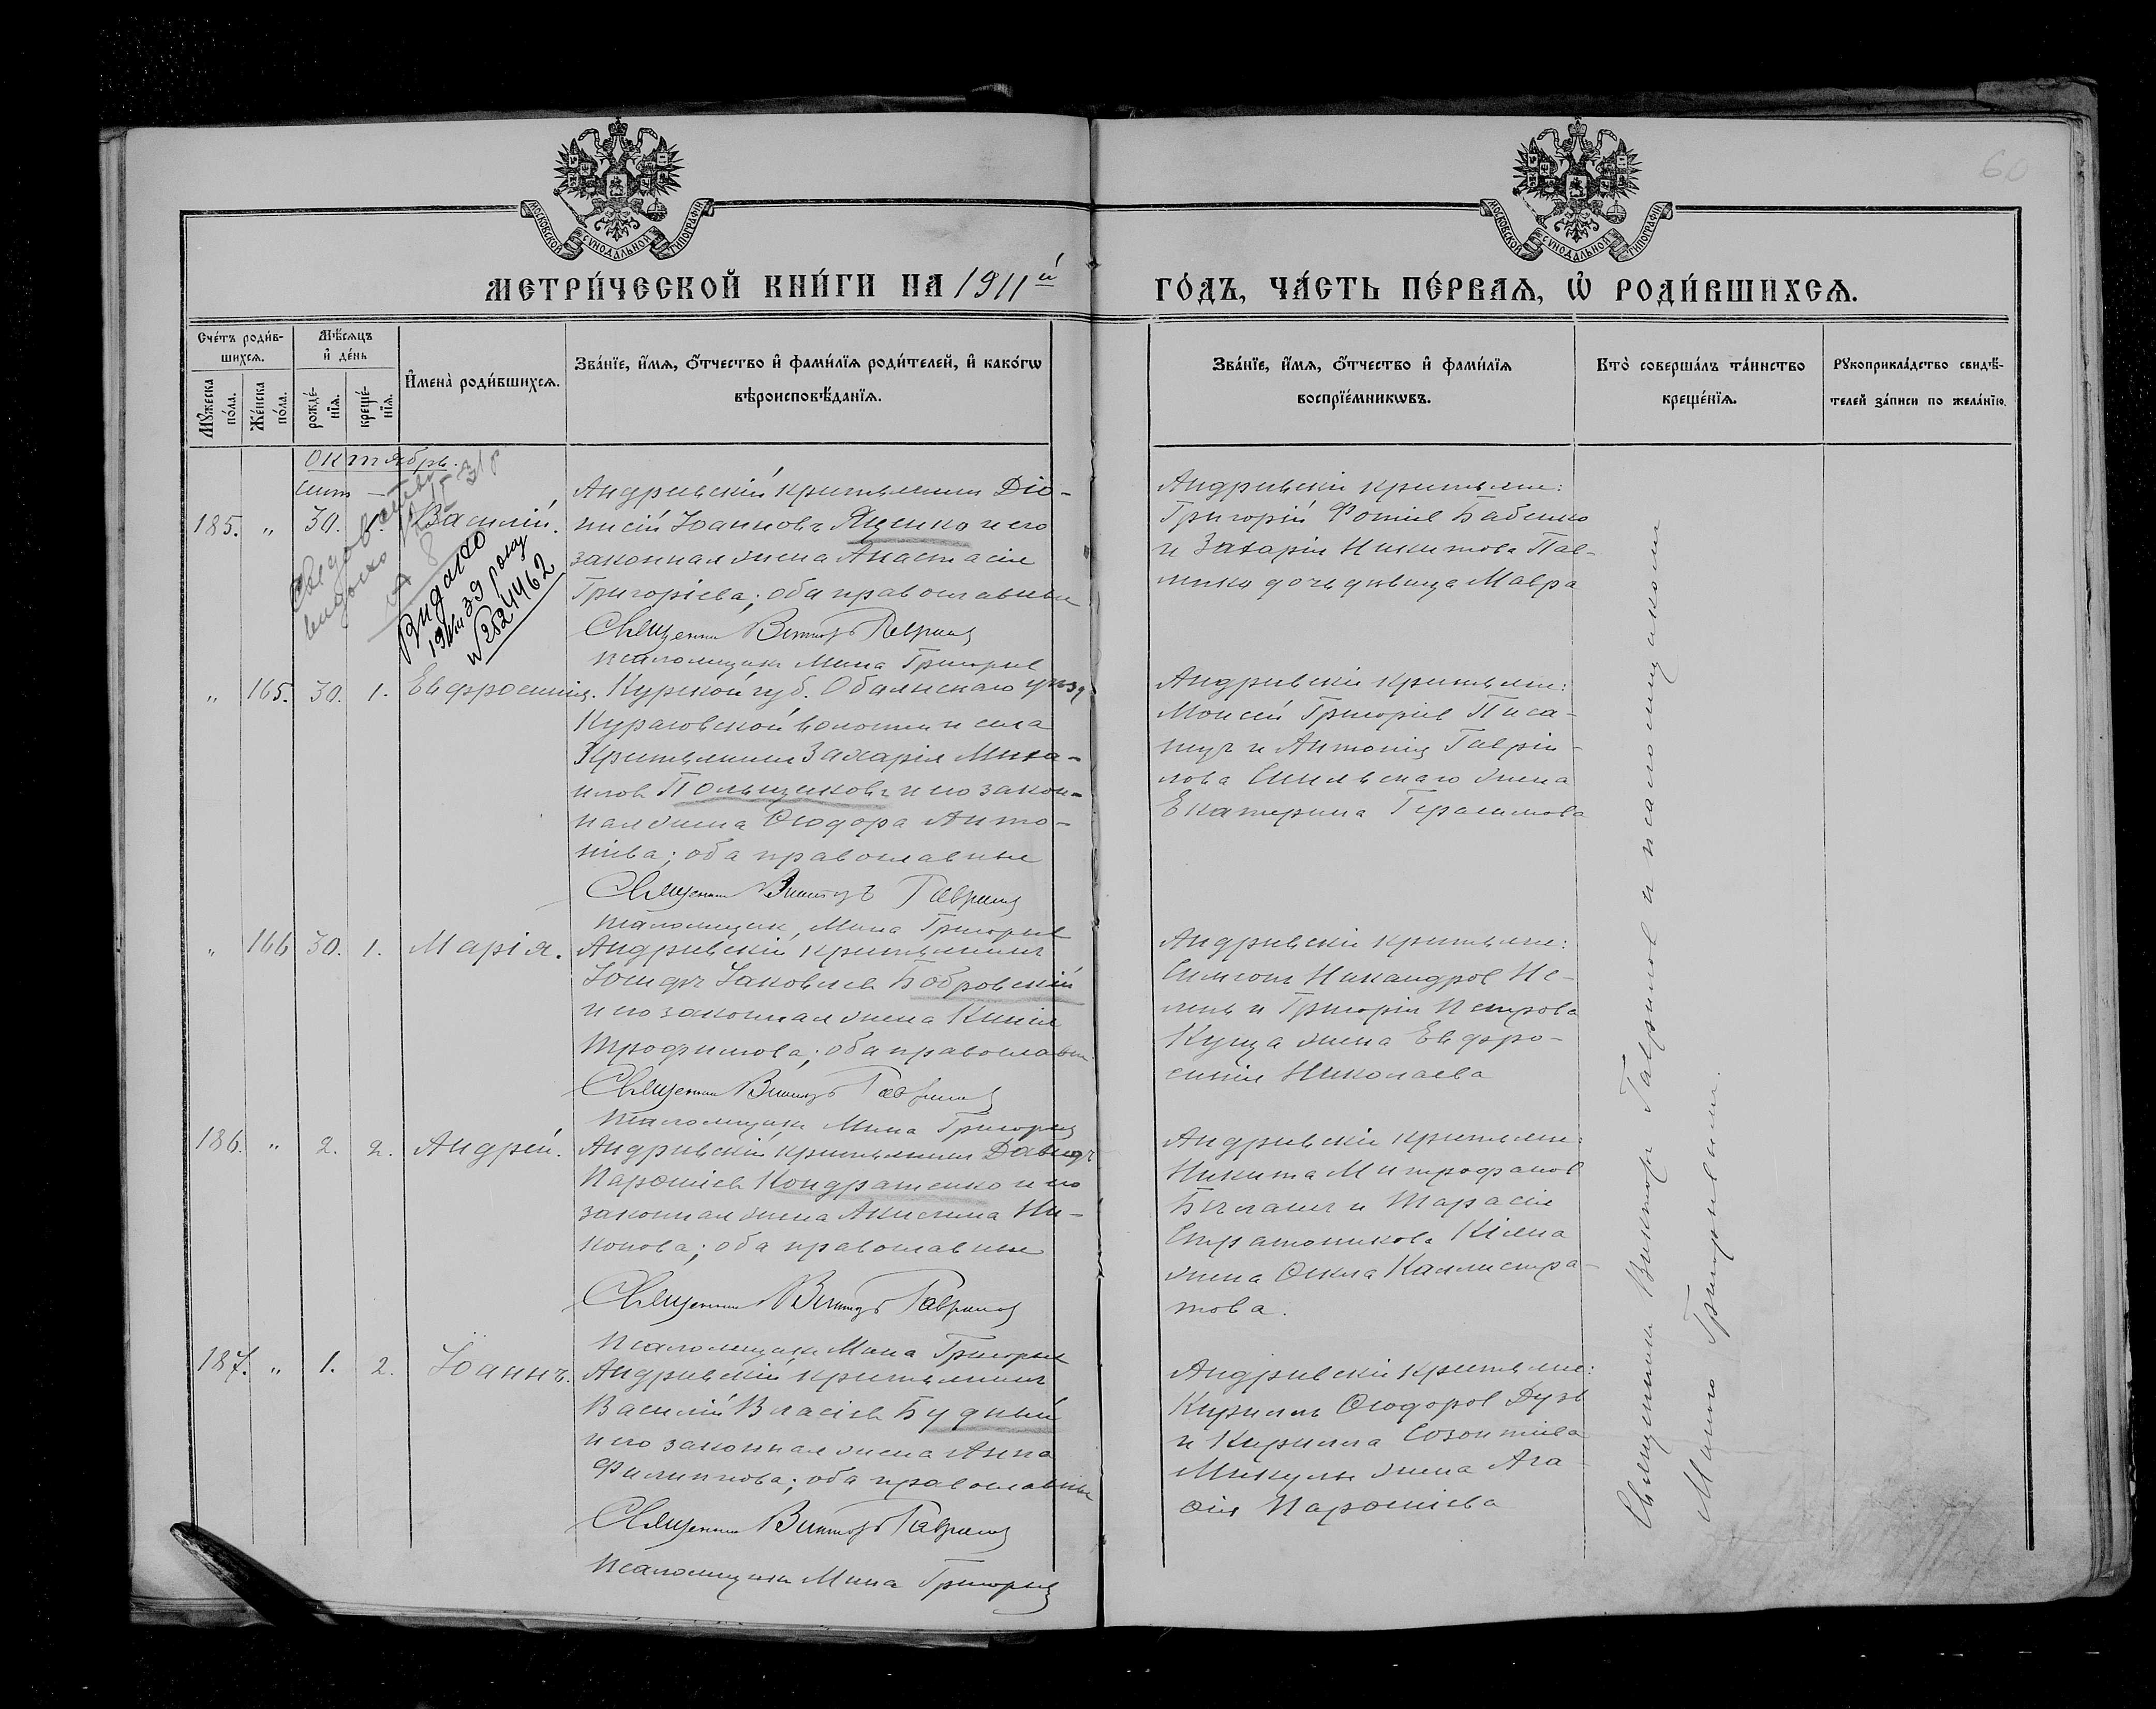 МОСКОВСКОЙ СУНОДАЛЬНОЙ ТИПОГРАФІИ
МОСКОВСКОЙ СУНОДАЛЬНОЙ ТИПОГРАФІИ
60
МЕТРИ́ЧЕСКОЙ КНИ́ГИ НА 1911й
ГО́ДЪ, ЧА́СТЬ ПЕ́РВАѦ, Ѡ РОДИ́ВШИХСѦ.
Сче́тъ роди́в-
шихсѧ.
Мꙋ́жеска по́ла.
Же́нска по́ла.
Мѣ́сѧцъ и҆ де́нь
рожде́-
нїѧ.
креще́-
нїѧ.
И҆мена̀ роди́вшихсѧ.
Зва́нїе, и҆́мѧ, ѻ҆́тчество и҆ фами́лїѧ роди́телей, и҆ како́гѡ
вѣроисповѣ́данїѧ.
Зва́нїе, и҆́мѧ, ѻ҆́тчество и҆ фами́лїѧ
воспрїе́мникѡвъ.
Кто̀ соверша́лъ та́инство
креще́нїѧ.
Рꙋкоприкла́дство свидѣ́-
телей за́писи по жела́нїю.
Октябрь.
Сент —
185. " 30. Василій.
Андреевскій крестьянинъ Діо-
нисій Іоанновъ Яценко и его
законная жена Анастасія
Григоріева; оба православные
Священникъ Викторъ Гавриловъ
Псаломщикъ Мина Григорьевъ
Андреевскіе крестьяне:
Григорій Фотіевъ Бабенко
и Захарія Никитова Пав-
ленко дочь девица Мавра
Видано
39 року
№ 524462
" 165. 30. 1. Евфросинія.
Курской губ. Обоянскаго уезд
волости и села
Крестьянинъ Захарія Миха-
иловъ Польщиковъ и его закон-
ная жена Ѳеодора Анто-
ніева; оба православные
Священникъ Викторъ Гавриловъ
Псаломщикъ Мина Григорьевъ
Андреевскіе крестьяне:
Моисей Григоріевъ Писа-
рецъ и Антонія Гаврі-
лова жена
Екатерина Герасимова
" 166 30. 1. Марія.
Андреевскій крестьянинъ
Іосифъ Іаковлевъ Бобровскій
и его законная жена Ксенія
Трофимова; оба православн.
Священникъ Викторъ Гавриловъ
Псаломщикъ Мина Григорьевъ
Андреевскіе крестьяне:
Симеонъ Никандровъ Не-
и Григорія Петрова
Куща жена Евфро-
синія Николаева
186. " 2. 2. Андрей.
Андреевскій крестьянинъ Давидъ
Парѳеніевъ Кондратенко и его
законная жена Акилина Ни-
конова; оба православные
Священникъ Викторъ Гавриловъ
Псаломщикъ Мина Григорьевъ
Андреевскіе крестьяне:
Никита Митрофановъ
и Тарасія
Стратоникова жена Ѳекла Каллистра-
това.
187. " 1. 2. Іоаннъ.
Андреевскій крестьянинъ
Василій Власіевъ Будный
и его законная жена Анна
Филиппова; оба православные
Священникъ Викторъ Гавриловъ
Псаломщикъ Мина Григорьевъ
Андреевскіе крестьяне:
Кириллъ Ѳеодоровъ Дузь
и Кирилла Созонтіева
Микулы жена Ага-
ѳія Парѳеніева
Священникъ Викторъ Гавриловъ и псаломщикомъ
Миною Григорьевымъ.